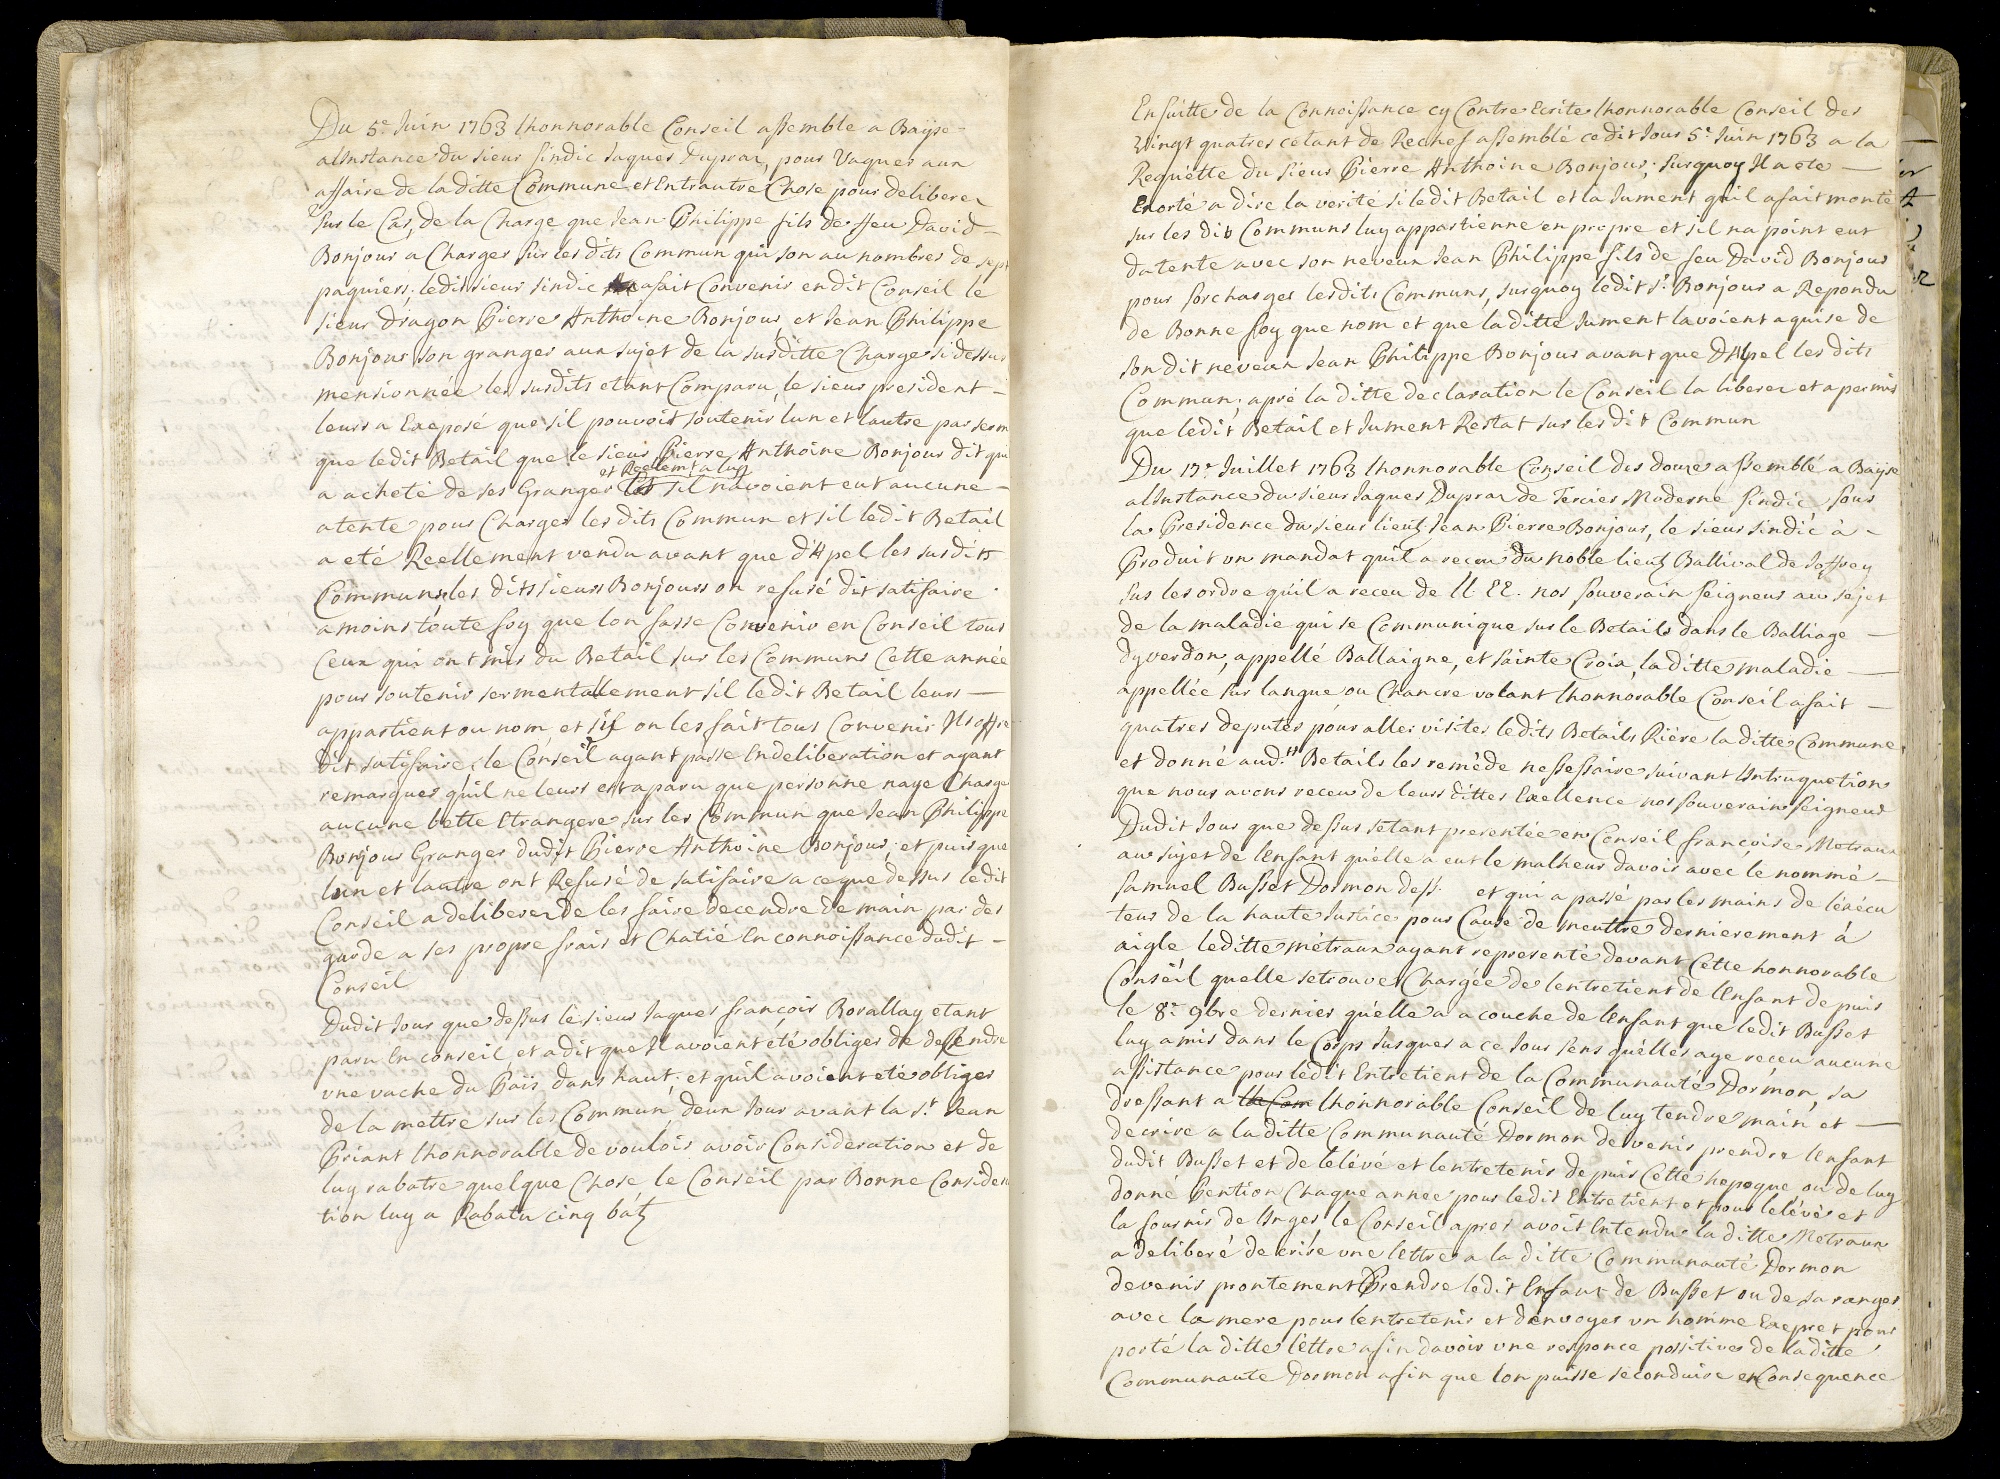 Du 5e Juin 1763 lhonnorable Conseil assemble a Baÿse
alinstance du sieur sindic Jaques Duprax, pour Vaques aux
affaire de la ditte Commune et Entrautre Chose pour deliberer
sur le Cas, de la Charge que Jean Philippe fils de ffeu David
Bonjour a Charger sur les dits Commun qui son au nombres de sept
paquiers; ledit sieur sindic afait Convenir en dit Conseil le
sieur dragon Pierre Anthoine Bonjour et Jean Philippe
Bonjour son granger aux sujet de la susditte Charge si dessus
mensionnée les susdits etant Comparu, le sieur president
leurs a Exeposé que sil pouvoit soutenir lun et lautre par serm
que ledit Betail que le sieur Pierre Anthoine Bonjour dit qui
et Reelemt a luy
a acheté de ses Granger sil navoient eut aucune
atente pour Charger les dits Commun et sil ledit Betail
a eté Reellement vendu avant que d'Apel les susdits
Communs les dits sieurs Bonjours on refusé dit satisfaire
amoins toute foy que lon fasse Convenir en Conseil tous
Ceux qui ont mis du Betail sur les Communs Cette année
pour soutenir sermentallement sil ledit Betail leurs
appartient ou nom et sil on les fait tous Convenir Ils offre
dit satisfaire, le Conseil ayant passe En deliberation et ayant
remarquer quil ne leurs est aparu que personne naye Charge
aucune bette Etrangere sur les Commun que Jean Philippe
Bonjour Granger dudit Pierre Anthoine Bonjour; et puis que
lun et lautre ont Refusé de satisfaire a ceque dessus ledit
Conseil a deliberer de les faire decendre demain par des
garde a ses propre frais et Chatié En connoissance dudit
Conseil
Dudit Jour que dessus le sieur Jaques françois Borallay etant
paru En conseil et a dit que Il avoient été obliger de dessendre
vne vache du Païs dans haut; et quil avoient eté obliger
de la mettre sur les Commun, deux Jour avant la St Jean
Priant lhonnorable de vouloir avoir Consideration et de
luy rabatre quelque Chose le Conseil par Bonne Considera
tion luy a Rabatu cinq batz
Ensuitte de la Connoissance cy Contre Ecrite lhonnorable Conseil des
Vingt quatres cétant de Rechef assemblé ce dit Jour 5e Juin 1763 a la
Requette du sieur Pierre Anthoine Bonjour; surquoy Il a ete
Exorté a dire la verité si ledit Betail et la Jument quil a fait monté
sur les dit Communs luy appartienne en propre et sil na point eut
datente avec son neveux Jean Philippe fils de feu David Bonjour
pour sorcharger lesdits Communs, surquoy ledit sr Bonjour a Repondu
de Bonne foy que nom et que laditte Jument lavoient aquise de
son dit neveux Jean Philippe Bonjour avant que d'Apel les dits
Commun; apré la ditte declaration le Conseil la liberer et a permis
que ledit Betail et Jument Restat sur les dit Commun
Du 17e Juillet 1763 lhonnorable Conseil des douze assemblé a Baÿse
alinstance du sieur Jaques Duprax de Tercier Moderne sindic sous
la Presidence du sieur lieut Jean Pierre Bonjour, le sieur sindic à
Produit vn mandat quil a receu du noble lieut Ballival de Joffrey
sus les ordre quil a receu de Ll. EE. nos souverain seigneur au sujet
de la maladie qui se Communique sur le Betails dans le Balliage
dyverdon, appellé Ballaigne, et sainte Croix, la ditte maladie
appellée sur langue ou Chancre volant lhonnorable Conseil a fait
quatres deputés pour aller visiter ledits Betails Rière la ditte Commune
et donné aud.ts Betails les remède nessessaire suivant Intruquetion
que nous avons receu de leurs dittes Exellence nos souverain seigneur
Dudit Jour que dessus setant presentée en Conseil françoise Metraux
au sujet de lenfant quelle a eut le malheur davoir avec le nommé
Samuel Busset Dormon dess. et qui a passé par les mains de lexécu
teur de la haute Justice pour Cause de meuttre dernierement à
aigle leditte métraux ayant representé devant Cette honnorable
Conseil quelle se trouve Chargée de lentretient de lEnfant depuis
le 8e 9bre dernier quélle a acouche de lEnfant que ledit Busset
luy a mis dans le Corps Jusques a ce Jour sens quélles aye receu aucune
assistance pour ledit Entretient de la Communauté Dormon, sa
dressant a la Com lhonnorable Conseil de luy tendre main et
decrire a laditte Communauté Dormon de venir prendre lEnfant
dudit Busset et de lelévé et lentretenir depuis Cette hepoque ou de luy
donné Pention Chaque annee pour ledit Entretient et pour lelévé et
la fournir de linges, le Conseil apres avoir Entendu la ditte Metraux
a deliberé decrire vne lettre a la ditte Communauté Dormon
devenir prontement Prendre ledit Enfant de Busset ou de sa ranger
avec la mere pour lentretenir et d'envoyer un homme Exepret pour
porté la ditte lettre afin davoir vne responce possitive de la ditte
Communaute Dormon afin que lon puisse se conduire en Consequence